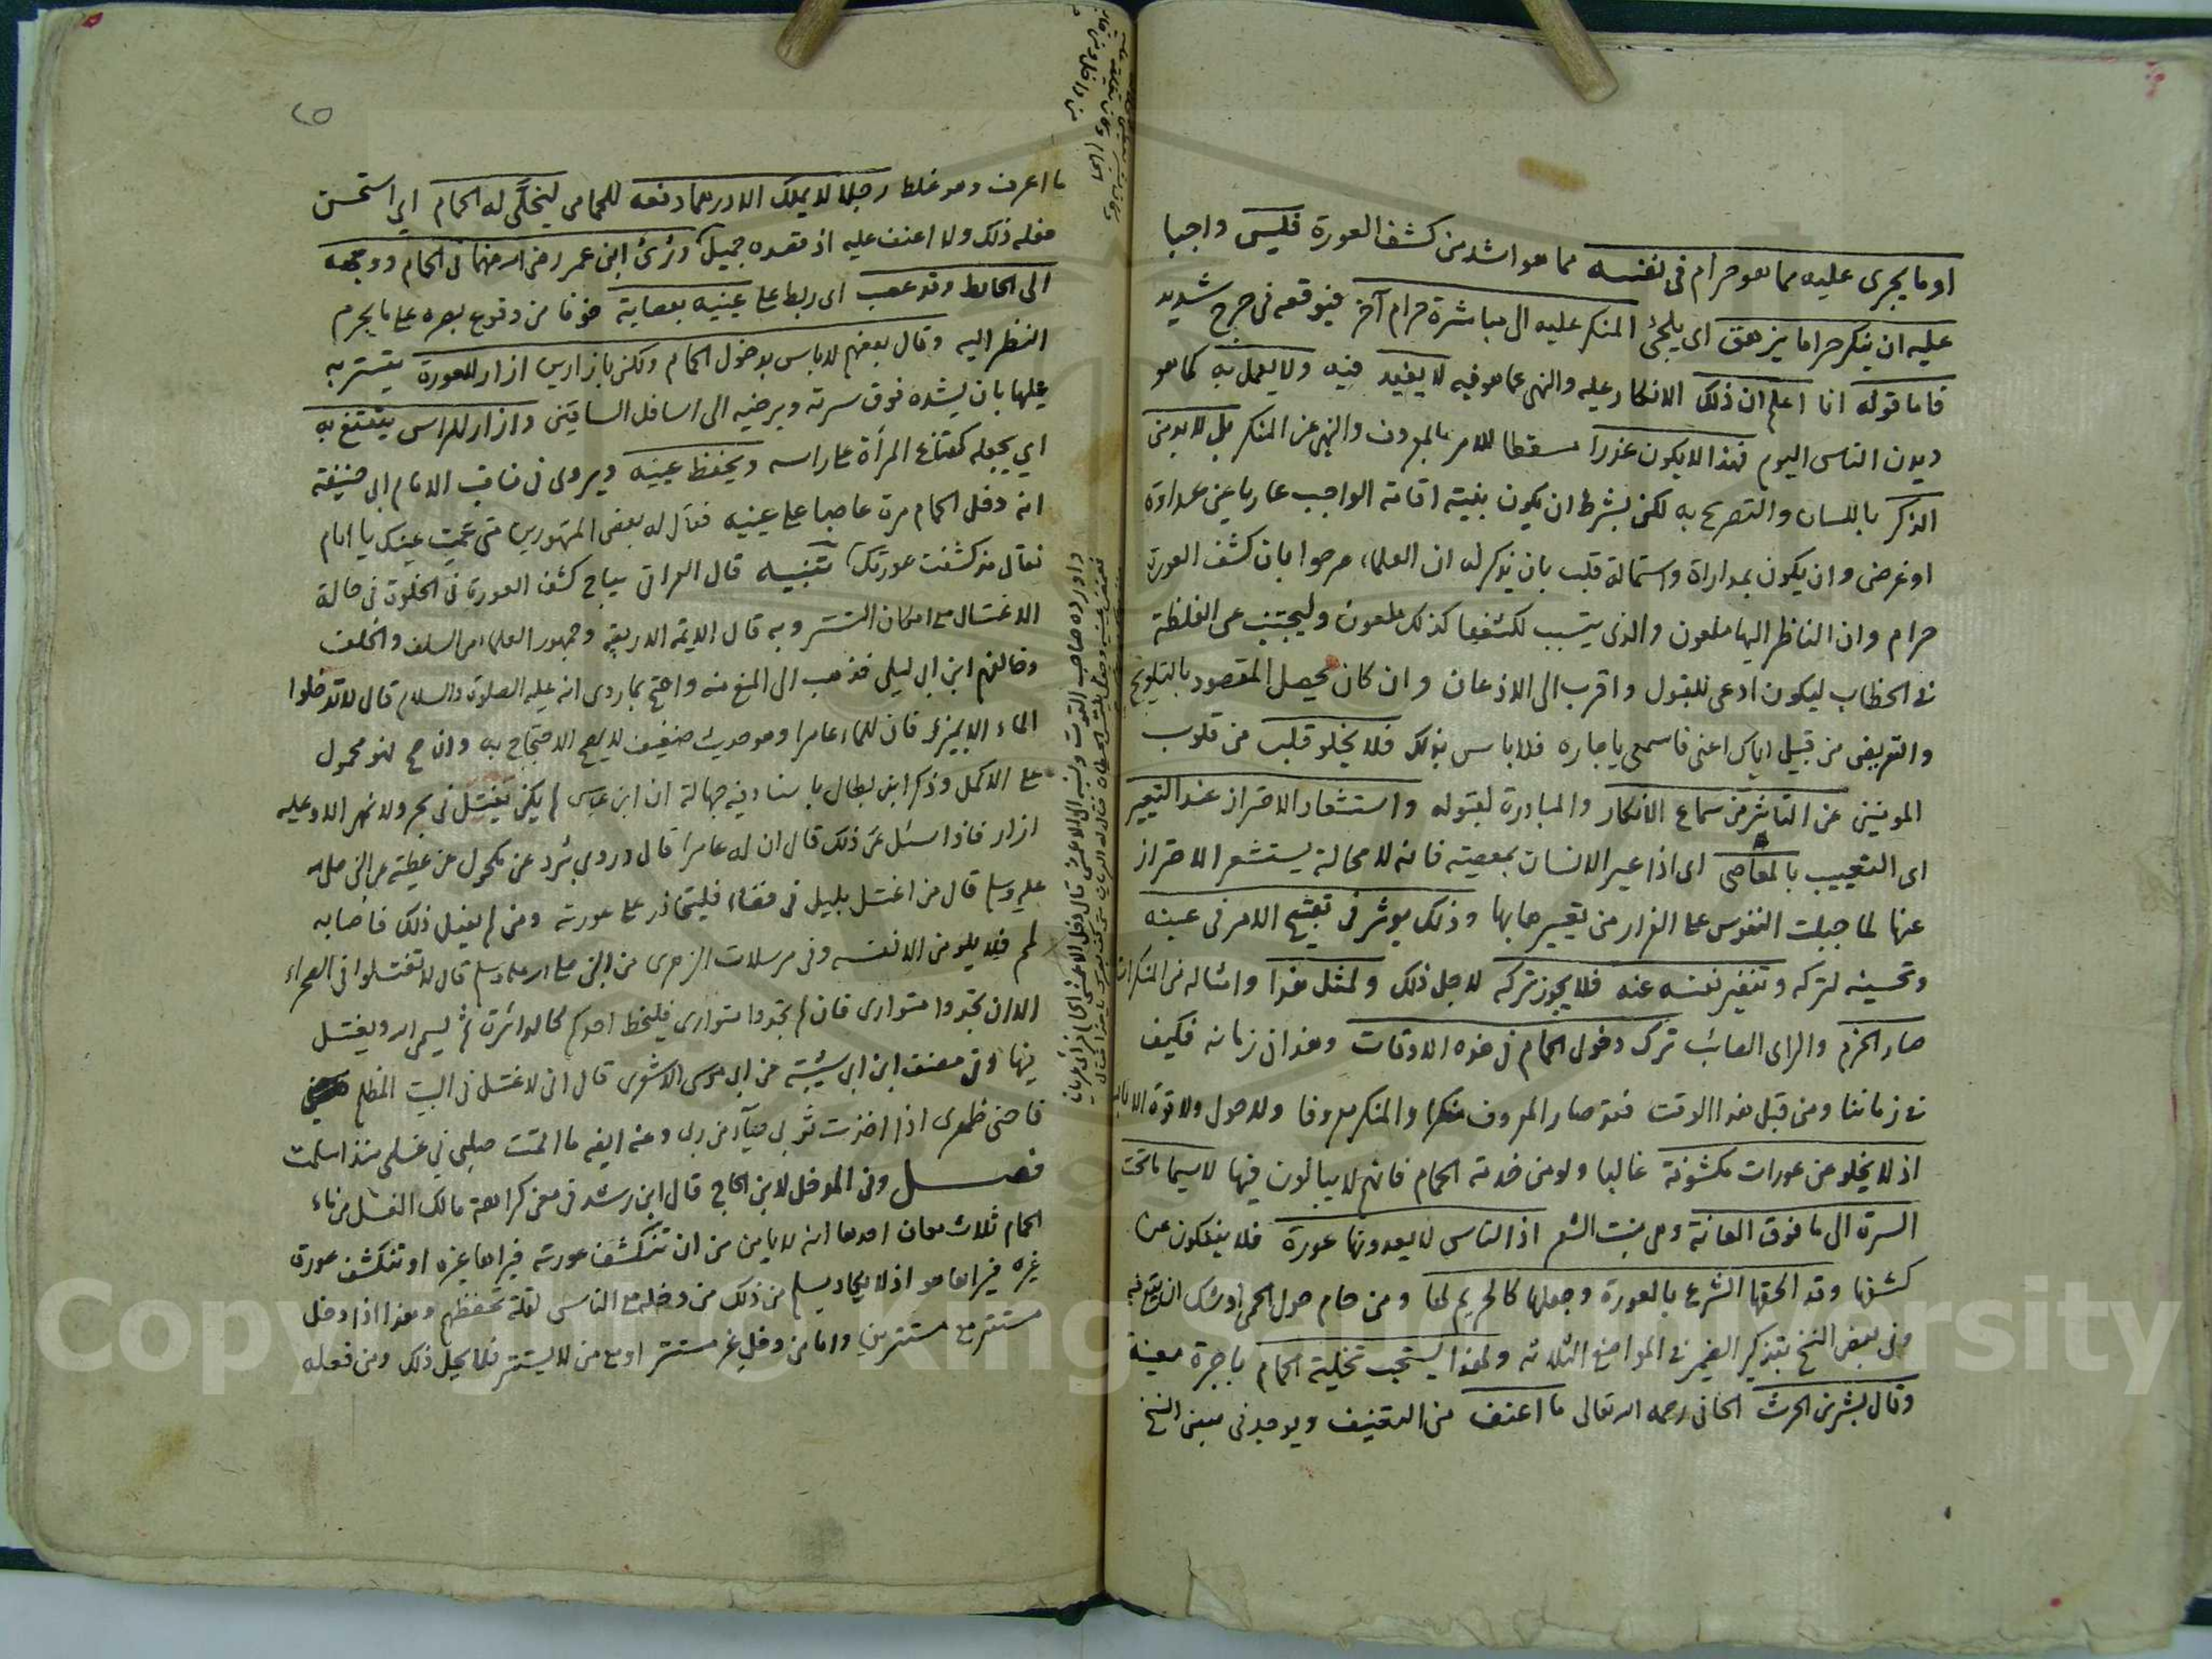 او ما يجرى عليه مما هو حرام فى نفسه مما هو اشد من كشف العورة فليس واجبا
عليه ان ينكر حراما يزهق اى يلجئ المنكر عليه الى مباشرة حرام آخر فيوقعه فى حرج شديد
فاما قوله انا اعلم ان ذلك الانكار عليه والنهى عما هو فيه لا يفيد فيه ولا يعمل به كما هو
ديدن الناس اليوم فهذا لا يكون عذرا مسقطا للامر بالمعروف والنهى عن المنكر بل لا بد من
الذكر باللسان والتصريح به لكن بشرط ان يكون بنية اقامة الواجب عاريا عن عداوة
او غرض وان يكون بمداراة واستمالة قلب بان يذكر له ان العلماء صرحوا بان كشف العورة
حرام وان الناظر اليها ملعون والذى يتسبب لكشفها كذلك ملعون وليجتنب عن الغلظة
فى الخطاب ليكون ادعى للقبول واقرب الى الاذعان وان كان يحصل المقصود بالتلويح
والتعريض من قبيل اياك اعنى فاسمعى يا جاره فلا باس بذلك فلا يخلو قلب من قلوب
المومنين عن التاثر من سماع الانكار والمبادرة لقبوله واستشعار الاحتراز عند التعيير
اى التعييب بالمعاصى اى اذا عير الانسان بمعصيته فانه لا محالة يستشعر الاحتراز
عنها لما جبلت النفوس على الفرار من تعييرها بها وذلك يوثر فى تقبيح الامر فى عينه
وتحسينه لتركه وتنفير نفسه عنه فلا يجوز تركه لاجل ذلك ولمثل هذا وامثاله من المنكرات
صار الحزم والراى الصائب ترك دخول الحمام فى هذه الاوقات وهذا فى زمانه فكيف
فى زماننا ومن قبل هذا الوقت فقد صار المعروف منكرا والمنكر معروفا ولا حول ولا قوة الا بالله
اذ لا يخلو عن عورات مكشوفة غالبا ولو من خدمة الحمام فانهم لا يبالون فيها لا سيما ما تحت
السرة الى ما فوق العانة وهى منبت الشعر اذ الناس لا يعدونها عورة فلا ينفكون عن
كشفها وقد الحقها الشرع بالعورة وجعلها كالحريم لها ومن حام حول الحمى اوشك ان يقع فيه
وفى بعض النسخ بتذكير الضمير فى المواضع الثلاثه ولهذا يستحب تخلية الحمام باجرة معينة
وقال بشر بن الحرث الحافى رحمه الله تعالى ما اعنف من التعنيف ويوجد فى بعض النسخ
ما اعرف وهو غلط رجلا لا يملك الا درهما دفعه للحمامى ليخلى له الحمام اى استحسن
فعله ذلك ولا اعنف عليه اذ قصده جميل ورئ ابن عمر رضى الله عنهما فى الحمام ووجهه
الى الحائط وقد عصب اى ربط على عينيه بعصابة خوفا من وقوع بصره على ما يحرم
النظر اليه وقال بعضهم لا باس بدخول الحمام ولكن بازارين ازار للعورة يستتر به
عليها بان يشده فوق سرته ويرخيه الى اسافل الساقين وازار للراس يتقنع به
اى يجعله كقناع المرأة على راسه ويحفظ عينيه ويروى فى مناقب الامام ابى حنيفة
انه دخل الحمام مرة عاصبا على عينيه فقال له بعض المتهورين متى عميت عينك يا امام
فقال مذ كشفت عورتك تنبيه قال العراقى يباح كشف العورة فى الخلوة فى حالة
الاغتسال مع امكان التستر وبه قال الايمة الاربعة وجمهور العلماء من السلف والخلف
وخالفهم ابن ابى ليلى فذهب الى المنع منه واحتج بما روى انه عليه الصلوة والسلام قال لا تدخلوا
الماء الا بميزر فان للماء عامرا وهو حديث ضعيف لا يصح الاحتجاج به وان صح فهو محمول
على الاكمل وذكر ابن بطال باسناد فيه جهالة ان ابن عباس لم يكن يغتسل فى بحر ولا نهر الا وعليه
ازار فاذا سئل عن ذلك قال ان له عامرا قال وروى برد عن مكحول عن عطية عن النبى صلى الله
عليه وسلم قال من اغتسل بليل فى فضاء فليحاذر على عورته ومن لم يفعل ذلك فاصابه
لمم فلا يلومن الا نفسه وفى مرسلات الزهرى عن النبى صلى الله عليه وسلم قال لا تغتسلوا فى الصحراء
الا ان تجدوا متوارى فان لم تجدوا متوارى فليخط احدكم كالدائرة ثم ليسمى الله ويغتسل
فيها وفى مصنف ابن ابى شيبة عن ابى موسى الاشعرى قال انى لاغتسل فى البيت المظلم
فاحنى ظهرى اذا اخذت ثوبى حياء من ربى وعنه ايضه ما اقمت صلبى فى غسلى منذ اسلمت
فصل وفى المدخل لابن الحاج قال ابن رشد فى معنى كراهة مالك الغسل من ماء
الحمام ثلاث معان احدها انه لا يامن من ان تنكشف عورته فيراها غيره او تنكشف عورة
غيره فيراها هو اذ لا يكاد يسلم من ذلك من دخله مع الناس لقلة تحفظهم وهذا اذا دخل
مستترا مع مستترين واما من دخل غير مستتر او مع من لا يستتر فلا يحل ذلك ومن فعله